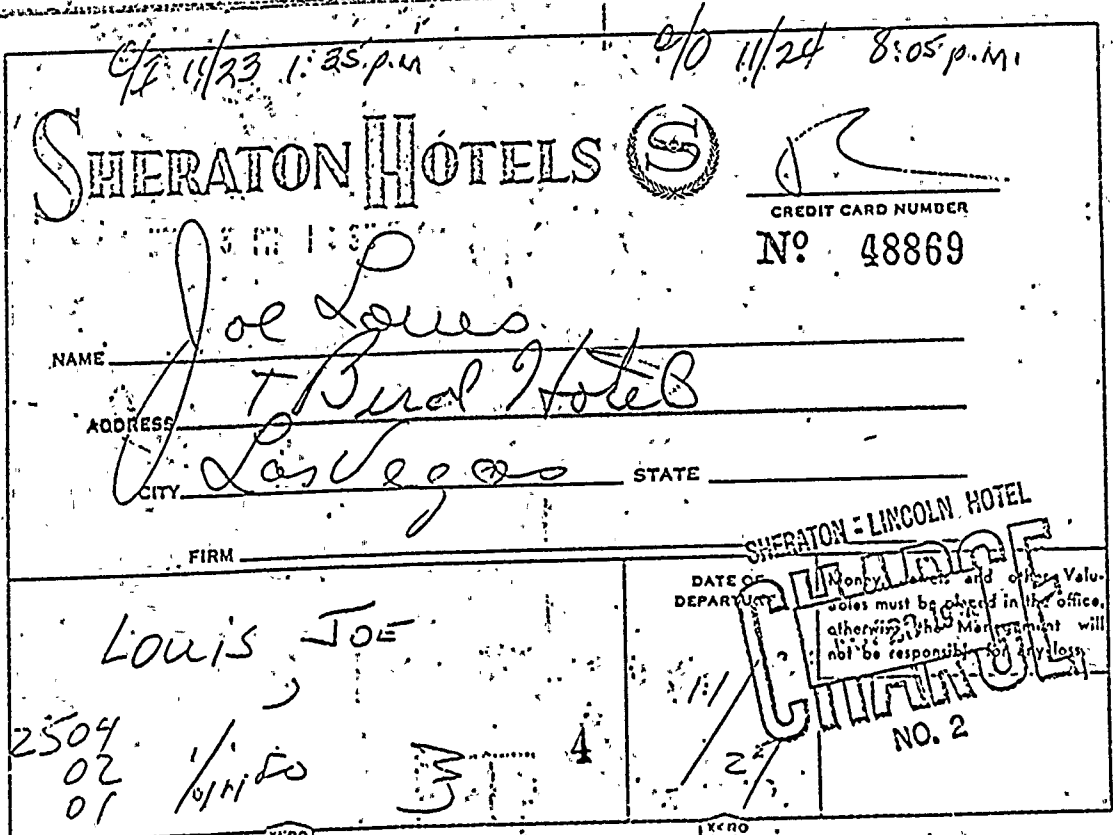 C/I 11/23 1:35 p.m
C/O 11/24 8:05 p.m.
SHERATON HOTELS S
CREDIT CARD NUMBER
Nº 48869
NAME Joe Louis
ADDRESS T Bird Hotel
CITY Las Vegas STATE
FIRM
SHERATON - LINCOLN HOTEL
CHARGE
DATE OF DEPARTURE
Money, Jewels and other Valu-
ables must be placed in the office,
otherwise the Management will
not be responsible for any loss.
CHANGE
NO. 2
LOUIS, JOE
2504
02
01
4